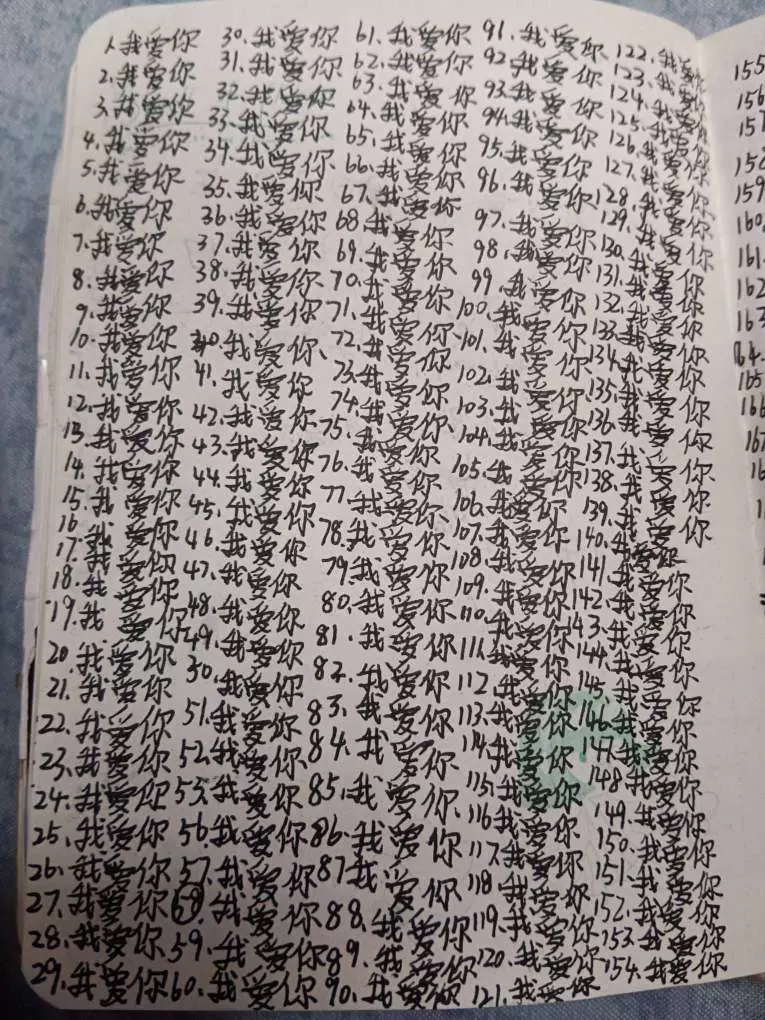 1.我爱你
2.我爱你
3.我爱你
4.我爱你
5.我爱你
6.我爱你
7.我爱你
8.我爱你
9.我爱你
10.我爱你
11.我爱你
12.我爱你
13.我爱你
14.我爱你
15.我爱你
16.我爱你
17.我爱你
18.我爱你
19.我爱你
20.我爱你
21.我爱你
22.我爱你
23.我爱你
24.我爱你
25.我爱你
26.我爱你
27.我爱你
28.我爱你
29.我爱你
30.我爱你
31.我爱你
32.我爱你
33.我爱你
34.我爱你
35.我爱你
36.我爱你
37.我爱你
38.我爱你
39.我爱你
40.我爱你
41.我爱你
42.我爱你
43.我爱你
44.我爱你
45.我爱你
46.我爱你
47.我爱你
48.我爱你
49.我爱你
50.我爱你
51.我爱你
52.我爱你
53.我爱你
56.我爱你
57.我爱你
58.我爱你
59.我爱你
60.我爱你
61.我爱你
62.我爱你
63.我爱你
64.我爱你
65.我爱你
66.我爱你
67.我爱你
68.我爱你
69.我爱你
70.我爱你
71.我爱你
72.我爱你
73.我爱你
74.我爱你
75.我爱你
76.我爱你
77.我爱你
78.我爱你
79.我爱你
80.我爱你
81.我爱你
82.我爱你
83.我爱你
84.我爱你
85.我爱你
86.我爱你
87.我爱你
88.我爱你
89.我爱你
90.我爱你
91.我爱你
92.我爱你
93.我爱你
94.我爱你
95.我爱你
96.我爱你
97.我爱你
98.我爱你
99.我爱你
100.我爱你
101.我爱你
102.我爱你
103.我爱你
104.我爱你
105.我爱你
106.我爱你
107.我爱你
108.我爱你
109.我爱你
110.我爱你
111.我爱你
112.我爱你
113.我爱你
114.我爱你
115.我爱你
116.我爱你
117.我爱你
118.我爱你
119.我爱你
120.我爱你
121.我爱你
122.我爱你
123.我爱你
124.我爱你
125.我爱你
126.我爱你
127.我爱你
128.我爱你
129.我爱你
130.我爱你
131.我爱你
132.我爱你
133.我爱你
134.我爱你
135.我爱你
136.我爱你
137.我爱你
138.我爱你
139.我爱你
140.我爱你
141.我爱你
142.我爱你
143.我爱你
144.我爱你
145.我爱你
146.我爱你
147.我爱你
148.我爱你
149.我爱你
150.我爱你
151.我爱你
152.我爱你
153.我爱你
154.我爱你
155
156
157
158
159
160.
161.
162
163
164.
165
166
167